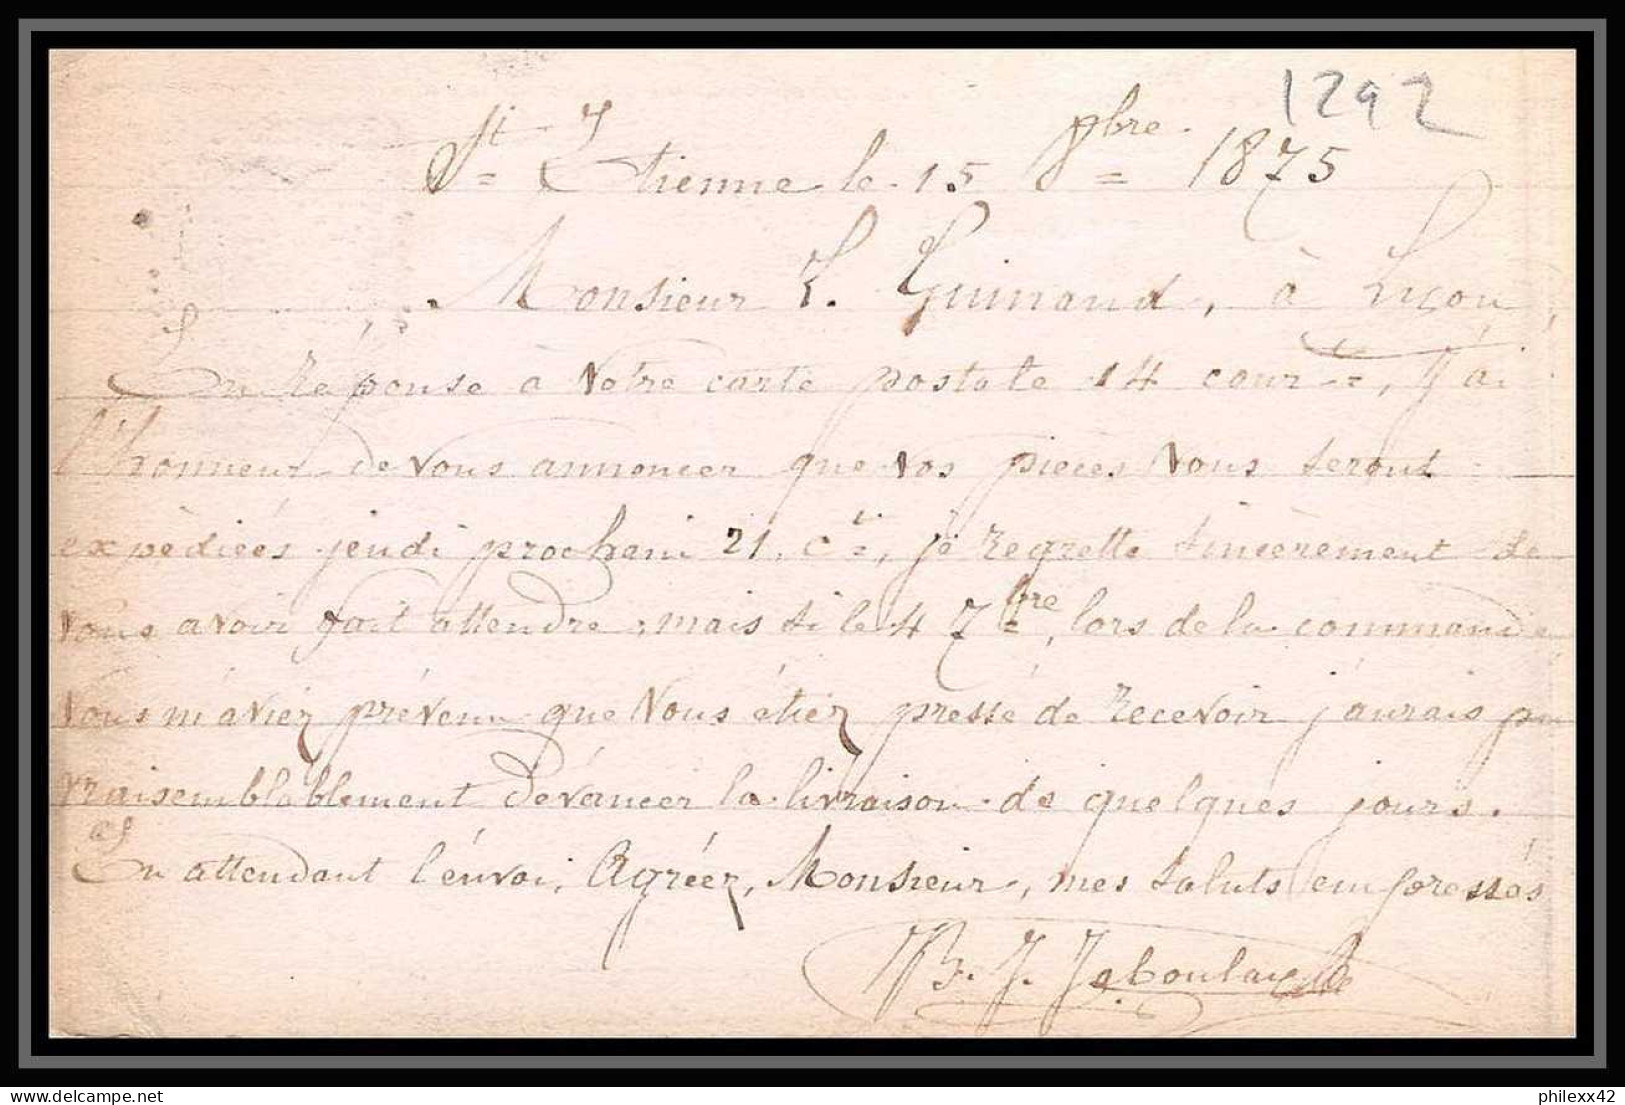 1292
St Etienne le 15 8bre 1875
Monsieur F. Guinand, à
En réponse à votre carte postale 14 cour=, j'ai
l'honneur de vous annoncer que vos pièces vous seront
expédiées jeudi prochain 21. ct, je regrette sincèrement de
vous avoir fait attendre, mais si le 4 7bre, lors de la commande
vous m'aviez prévenu que vous étiez pressé de recevoir j'aurais pu
vraisemblablement dévancer la livraison de quelques jours.
En attendant l'envoi, Agréez, Monsieur, mes saluts empressés
J. Jaboulay
www.delcampe.net
philexx42